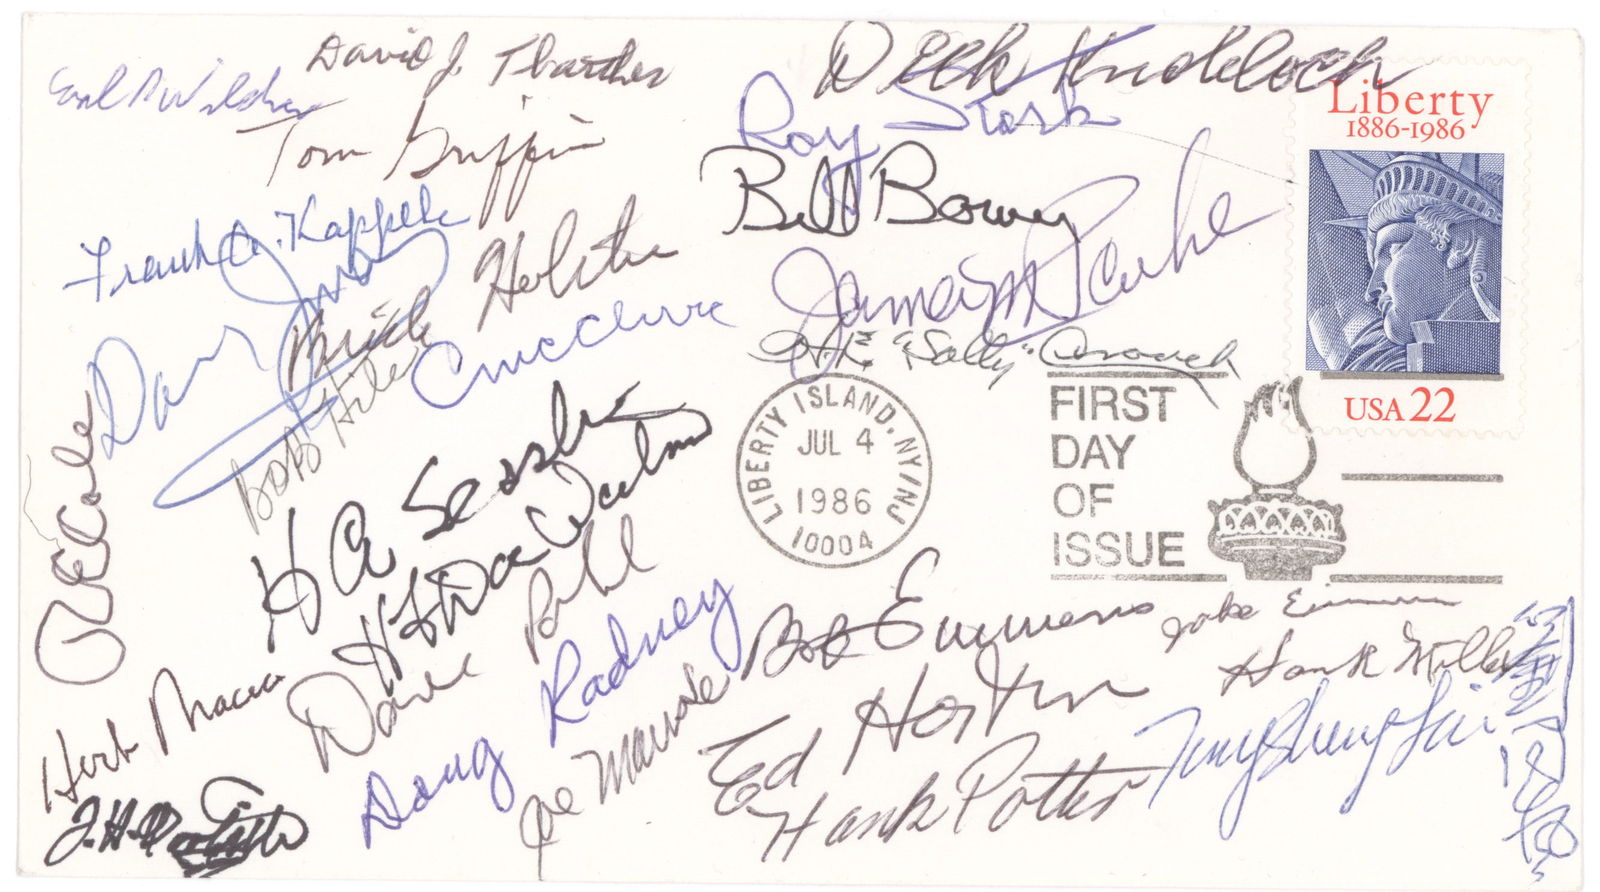 David J. Thatcher
Dick Knobloch
Tom Griffin
Roy Stork
Liberty
1886-1986
Bill Bower
Frank A. Kappeler
James M Parker
Brick Holstrom
C McClure
"Sally" Crouch
Davy Jones
Bob Hite
R E Cole
H A Sessler
USA 22
LIBERTY ISLAND, NY/NJ
JUL 4
1986
10004
FIRST
DAY
OF
ISSUE
H F Doc Watson
Dave Pohl
Doug Radney
Bob Emmens
Jake Emmens
Hank Miller
Herb Macia
Joe Manske
Ed Horton
Hank Potter
Tung Sheng Liu